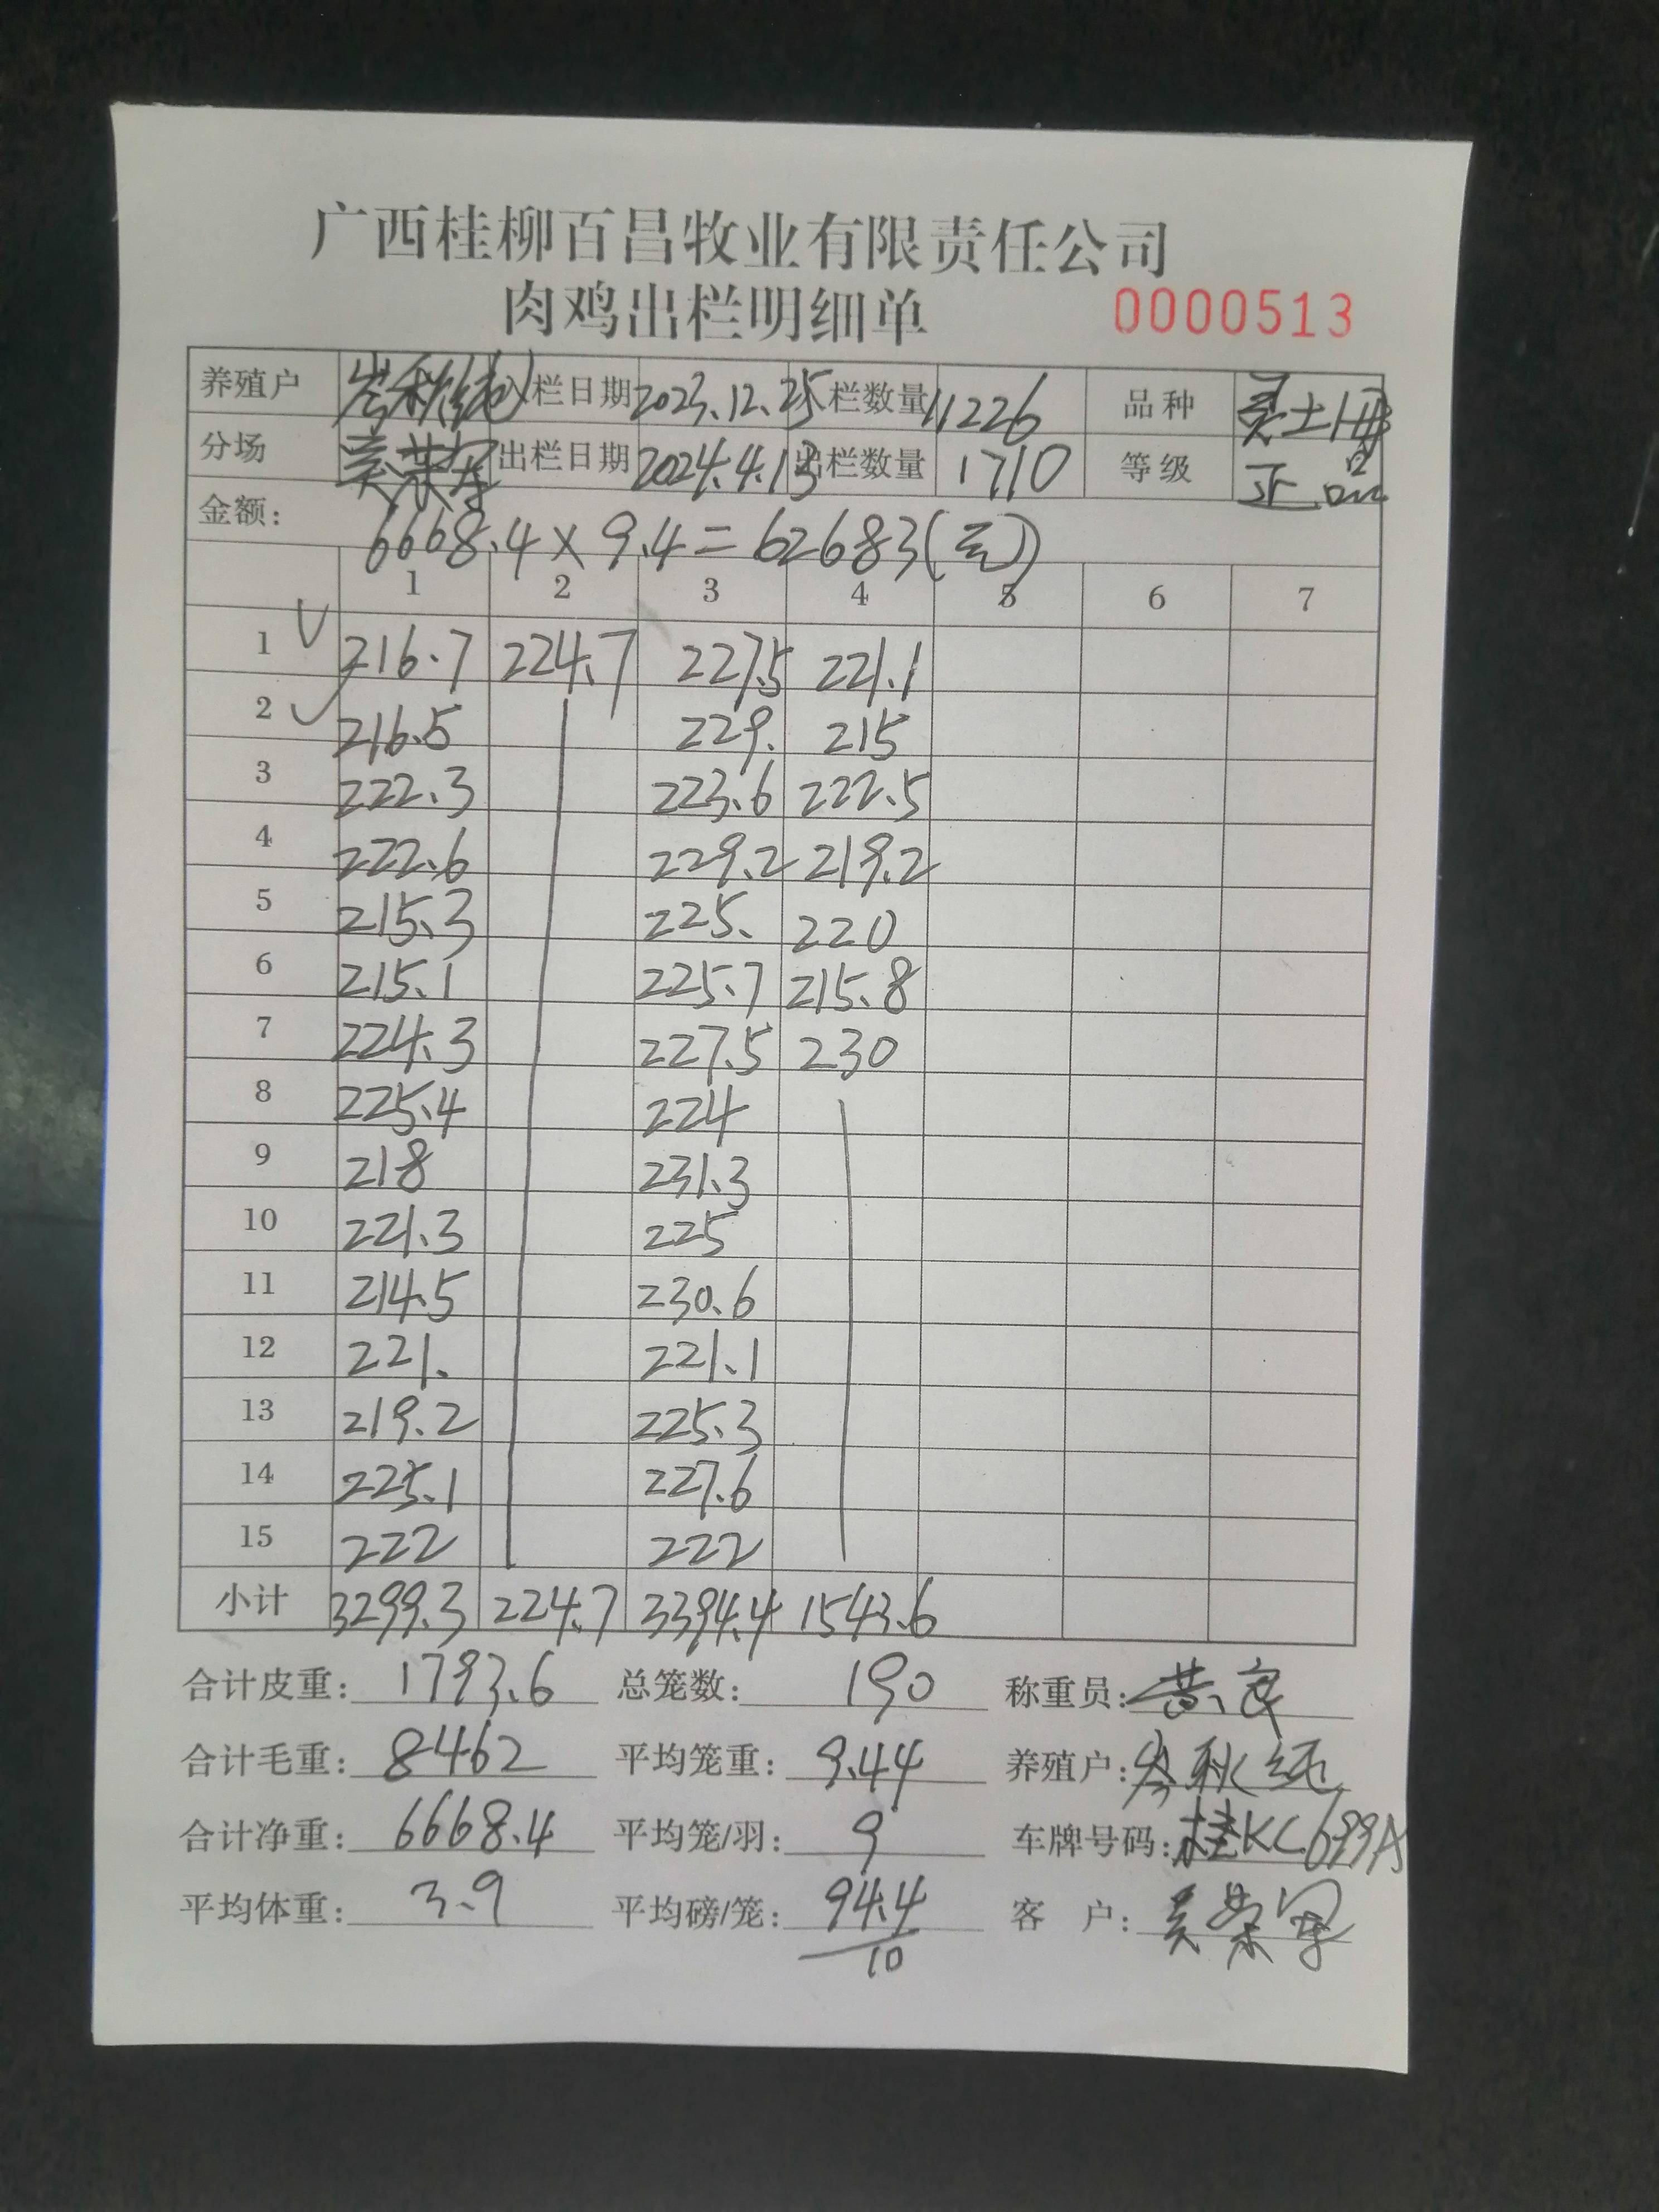 广西桂柳百昌牧业有限责任公司
肉鸡出栏明细单 0000513
养殖户 岑秋纯 入栏日期 2023.12.25 入栏数量 11226 品种
分场 出栏日期 2024.4.13 出栏数量 1710 等级 正品
金额: 6668.4×9.4=62683(元)
1 2 3 4 5 6 7
1 216.7 224.7 227.5 221.1
2 216.5 229. 215
3 222.3 223.6 222.5
4 222.6 229.2 219.2
5 215.3 225. 220
6 215.1 225.7 215.8
7 224.3 227.5 230
8 225.4 224
9 218 231.3
10 221.3 225
11 214.5 230.6
12 221. 221.1
13 219.2 225.3
14 225.1 227.6
15 222 222
小计 3299.3 224.7 3394.4 1543.6
合计皮重: 1793.6 总笼数: 190 称重员: 黄良
合计毛重: 8462 平均笼重: 9.44 养殖户: 岑秋纯
合计净重: 6668.4 平均笼/羽: 9 车牌号码: 桂KC699A
平均体重: 3.9 平均磅/笼: 94.4 客 户: 吴荣军
10